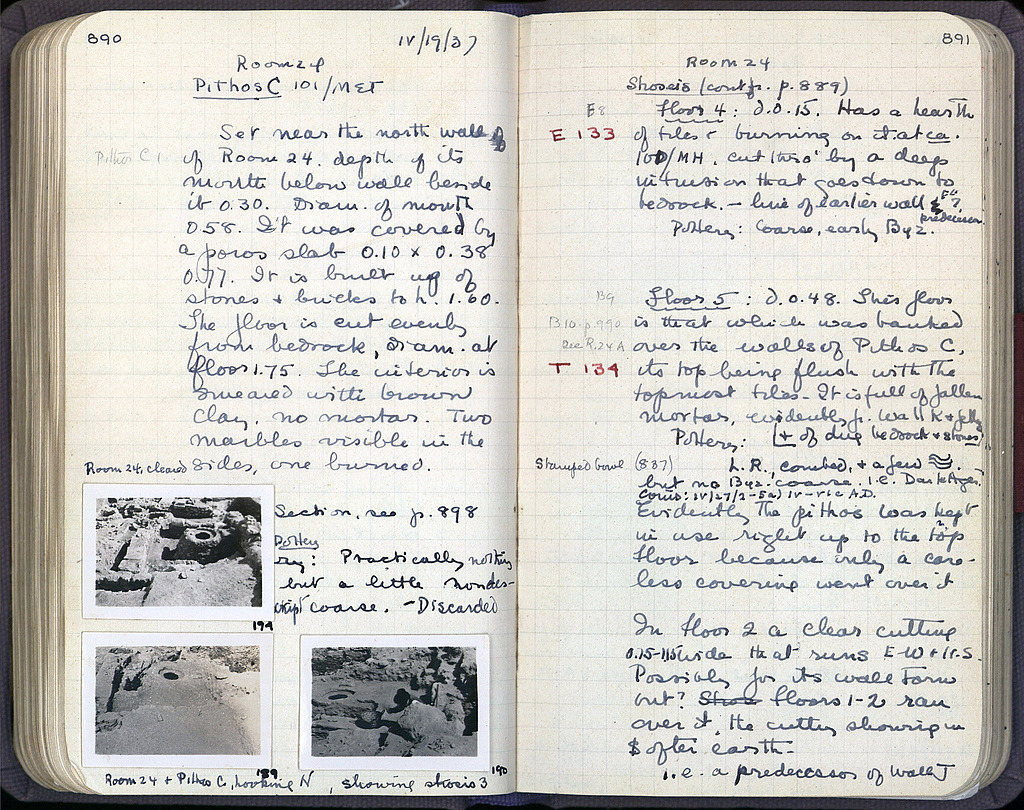 890
IV/19/37
Room 24
Pithos C 101/MET
Set near the north wall of
Pithos C 1
of Room 24. depth of its
mouth below wall beside
it 0.30. Diam. of mouth
0.58. It was covered by
a poros slab 0.10 x 0.38
0.77. It is built up of
stones + bricks to h. 1.60.
The floor is cut evenly
from bedrock, diam. at
floor 1.75. The interior is
smeared with brown
clay, no mortar. Two
marbles visible in the
sides, one burned.
Room 24, cleared
Section, see p. 898
Pottery
: Practically nothing
but a little nondes-
cript coarse. - Discarded
194
189
190
Room 24 + Pithos C, looking N, showing strosis 3
891
Room 24
Stroseis (cont. fr. p. 889)
E8
E 133
Floor 4: d. 0.15. Has a hearth
of tiles + burning on it at ca.
100/MH, cut thro' by a deep
intrusion that goes down to
bedrock. - line of earlier wall ?
predecessor
Pottery: Coarse, early Byz.
B9
B10 - p. 990
See R. 24 A
T 134
Floor 5: d. 0.48. This floor
is that which was banked
over the walls of Pithos C,
its top being flush with the
topmost tiles - It is full of fallen
mortar, evidently fr. Wall K +
Pottery: [+ of dug bedrock + stones]
Stamped bowl (837)
L. R., combed, + a few
but no Byz. coarse. i.e. Dark Ages.
Coins: IV/27/2-5a) IV-VI c A.D.
Evidently the pithos was kept
in use right up to the top
floor because only a care-
less covering went over it
In floor 2 a clear cutting
wide that runs E-W + N-S.
Possibly for its wall torn
out? floors 1-2 ran
over it, the cutting showing in
softer earth -
i.e. a predecessor of Wall J